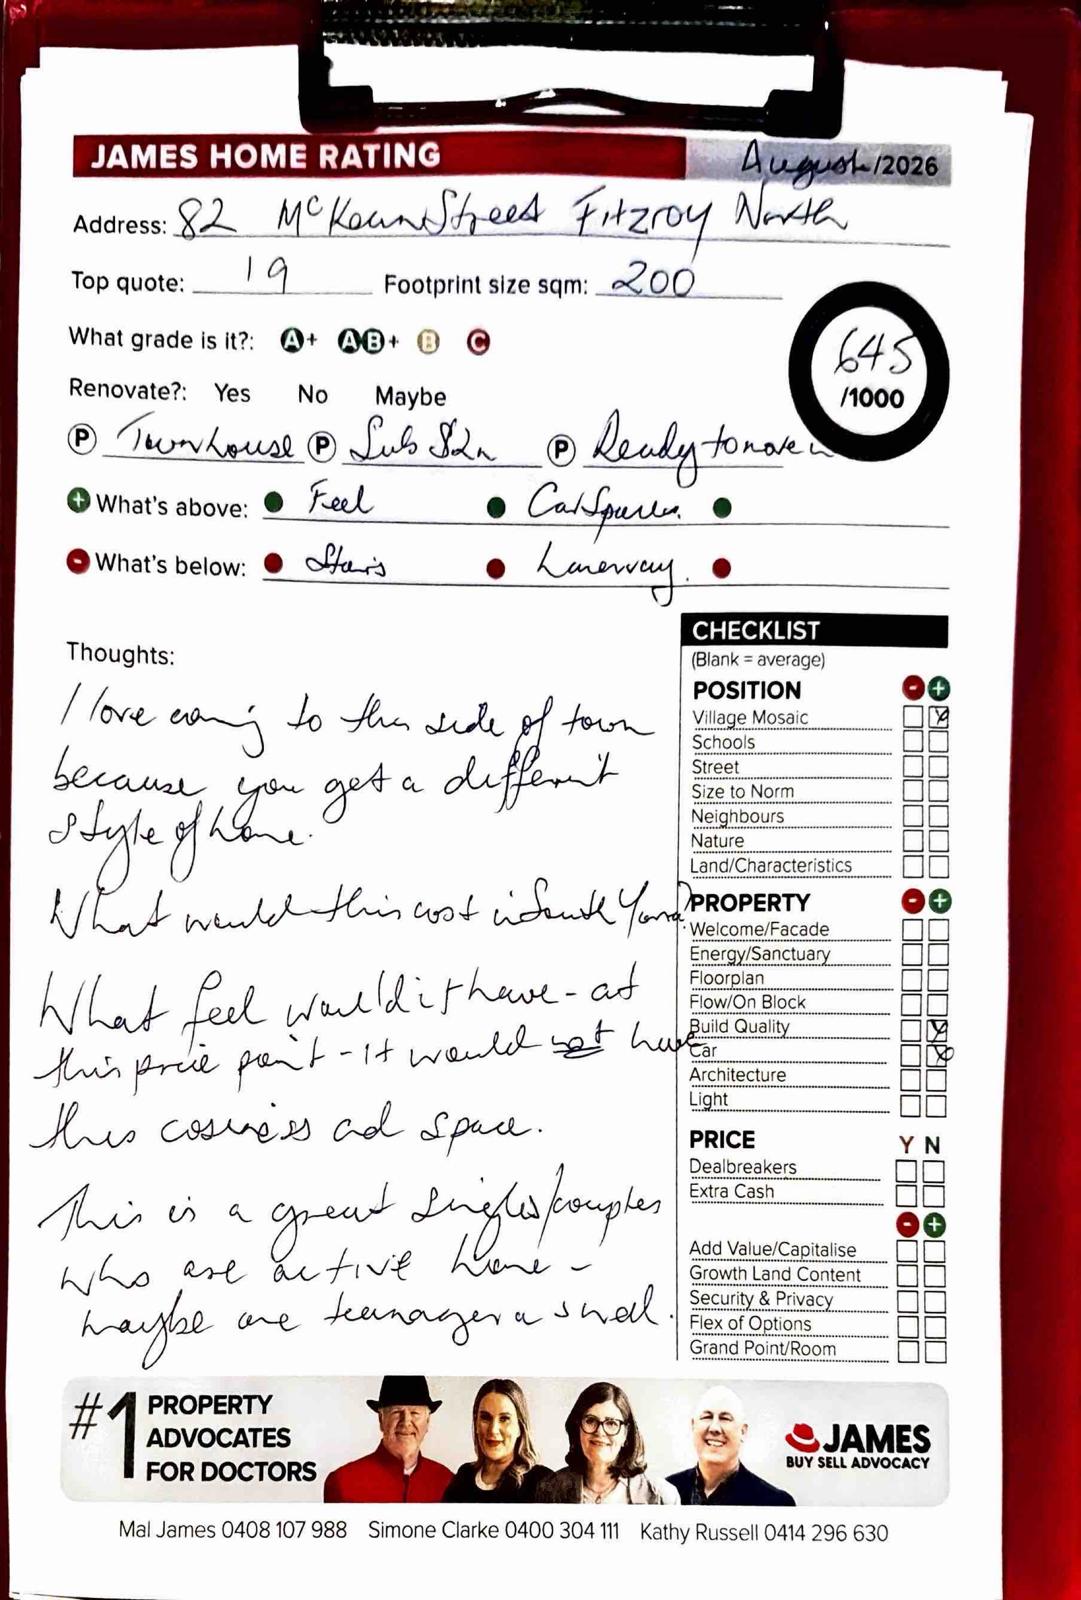 JAMES HOME RATING
August/2026
Address: 82 McKean Street Fitzroy North
Top quote: 19 Footprint size sqm: 200
645
/1000
What grade is it?: A+ AB+ B C
Renovate?: Yes No Maybe
P Townhouse P Sub $2m P Ready to move in
+ What's above: Feel Car Spaces.
- What's below: Stairs Laneway.
Thoughts:
I love coming to this side of town
because you get a different
style of home.
What would this cost in South Yarra?
What feel would it have - at
this price point - it would not have
this cosiness and space.
This is a great singles/couples
who are active home -
maybe one teenager
CHECKLIST
(Blank = average)
POSITION - +
Village Mosaic
Schools
Street
Size to Norm
Neighbours
Nature
Land/Characteristics
PROPERTY - +
Welcome/Facade
Energy/Sanctuary
Floorplan
Flow/On Block
Build Quality
Car
Architecture
Light
PRICE Y N
Dealbreakers
Extra Cash
- +
Add Value/Capitalise
Growth Land Content
Security & Privacy
Flex of Options
Grand Point/Room
#1 PROPERTY
ADVOCATES
FOR DOCTORS
JAMES
BUY SELL ADVOCACY
Mal James 0408 107 988 Simone Clarke 0400 304 111 Kathy Russell 0414 296 630